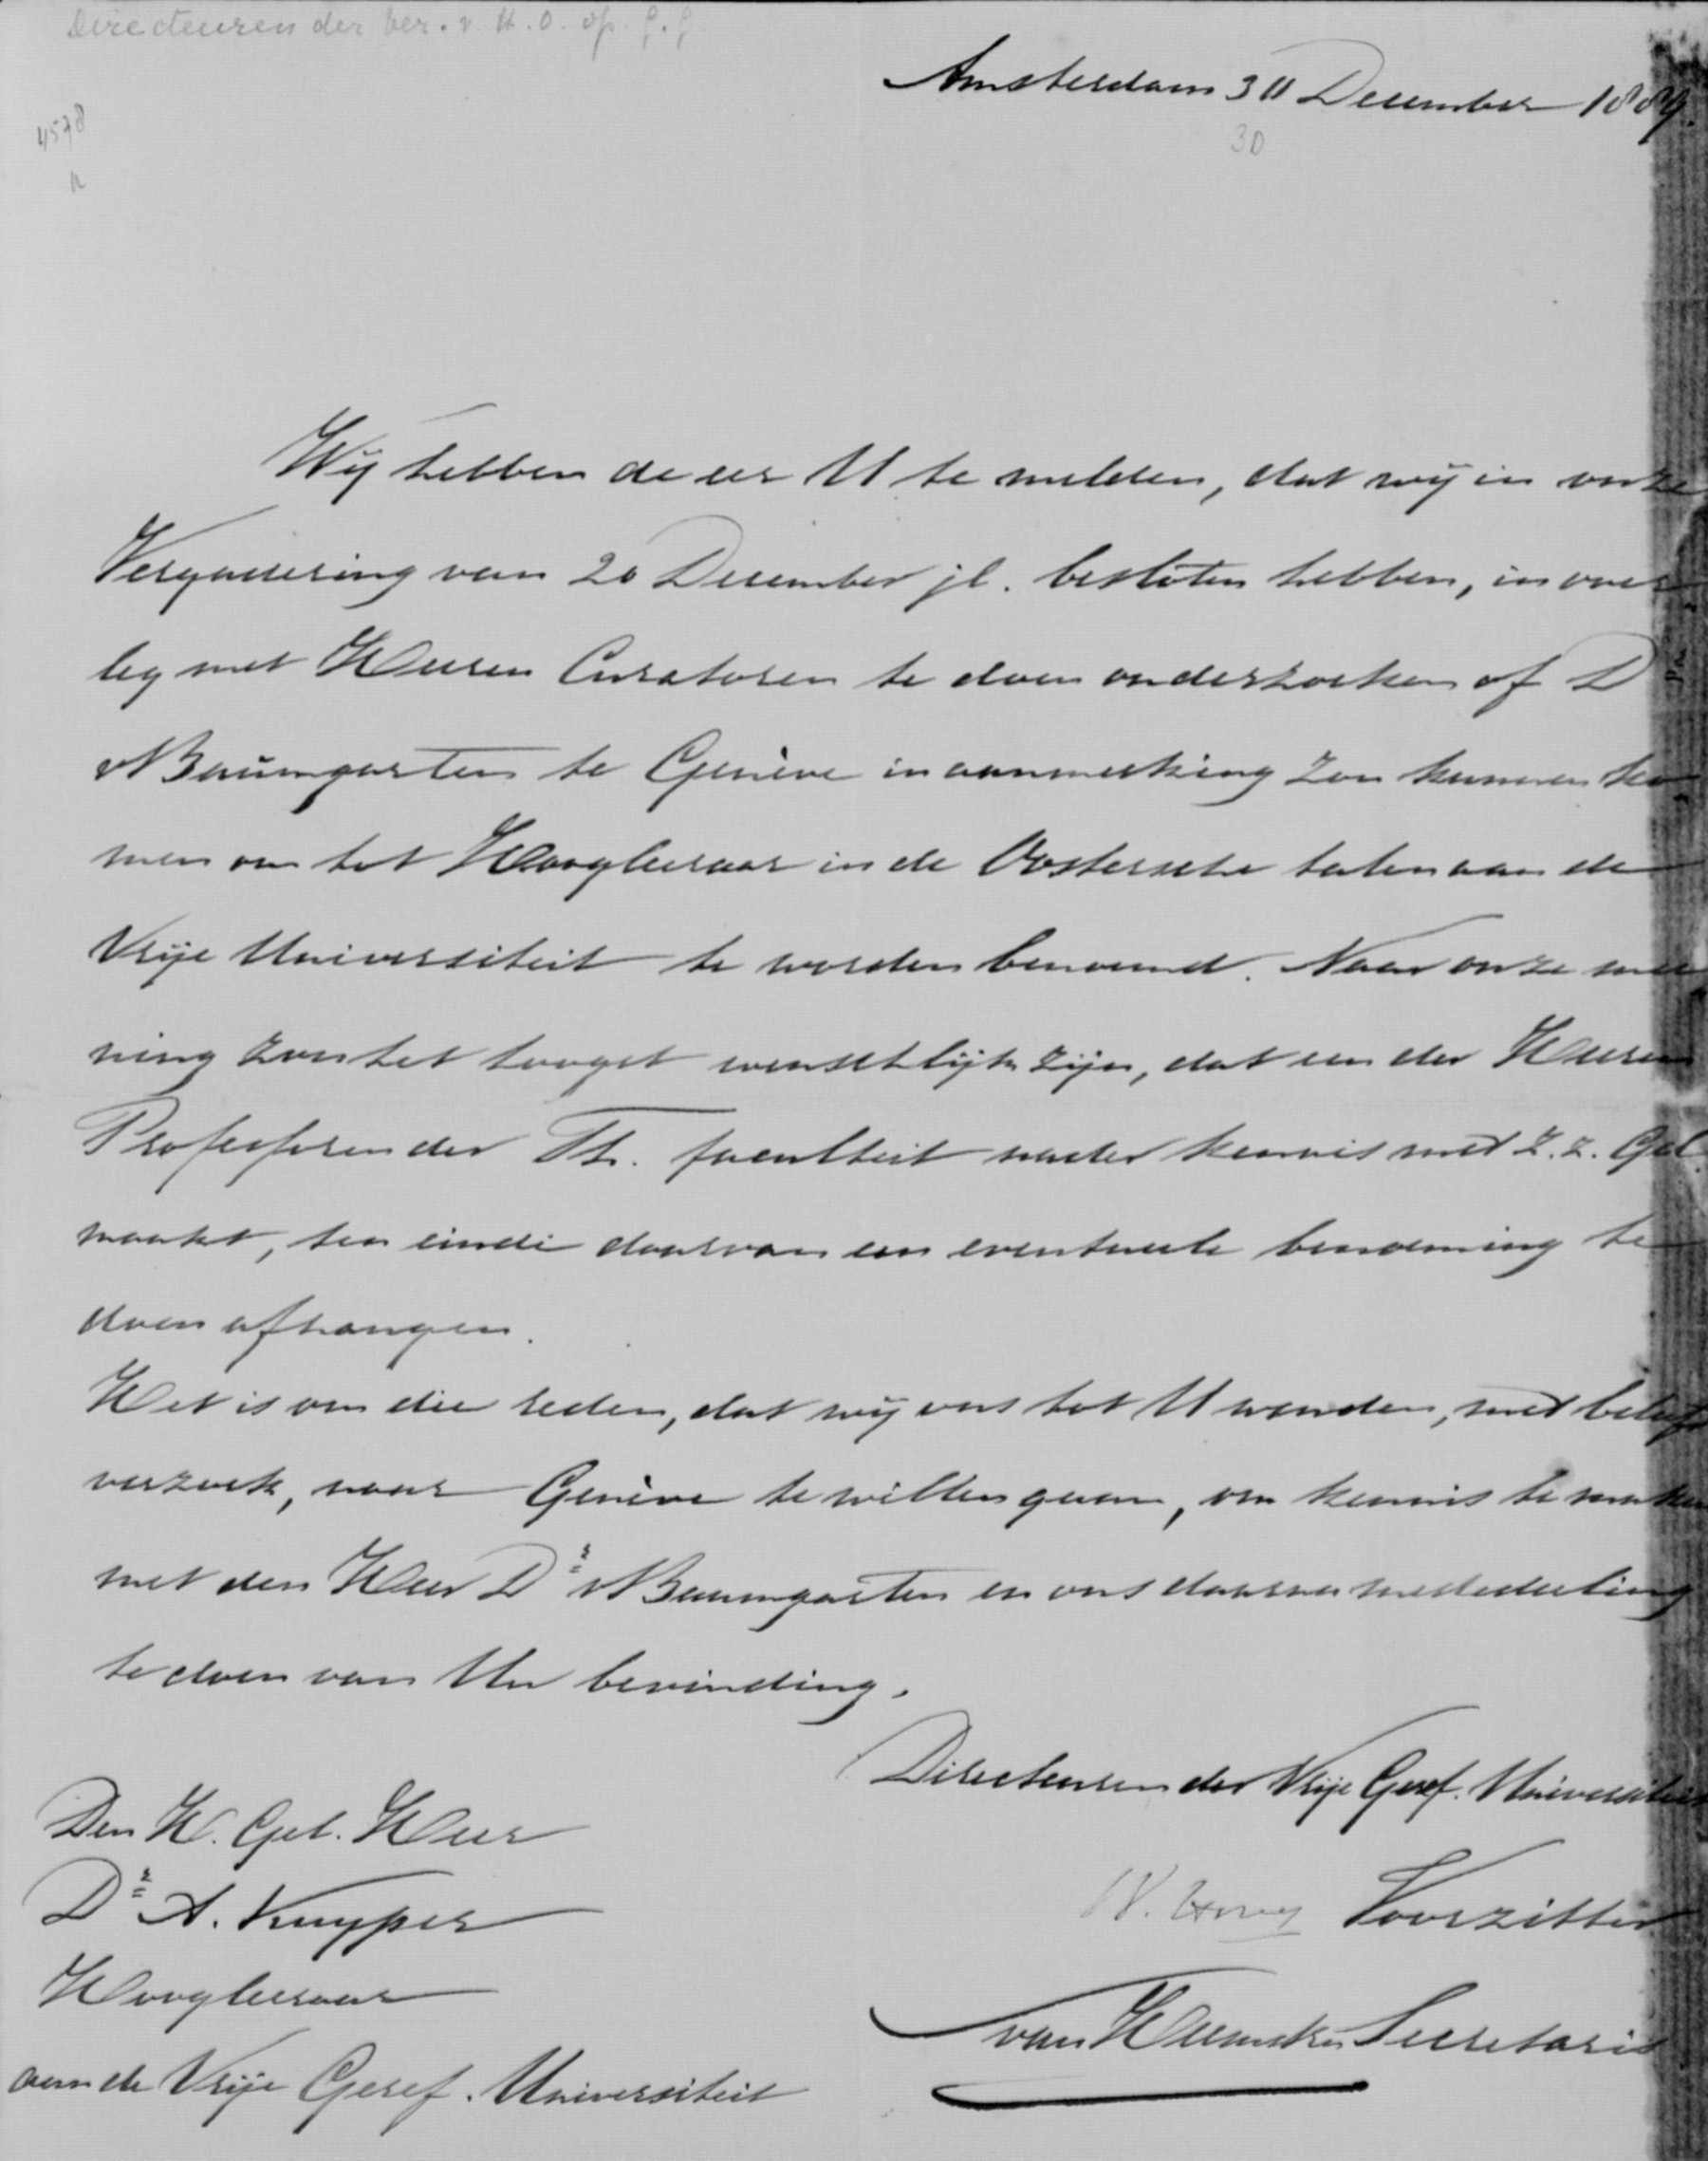 Directeuren der ver. v. H. O. op. g. g
Amsterdam 30 December 1889.
30
4578
Wij hebben de eer U te melden, dat wij in onze
Vergadering van 20 December jl. besloten hebben, in over
leg met Heeren Curatoren te doen onderzoeken of D
v Baumgarten te Genève in aanmerking zou kunnen ko
men om tot Hoogleeraar in de Oostersche talen aan de
Vrije Universiteit te worden benoemd. Naar onze mee
ning zou het hoogst wenschlijk zijn, dat een der Heeren
Professoren der Th. faculteit nader kennis met Z. Z. Gel.
maakt, ten einde daarvan een eventueele benoeming te
doen afhangen.
Het is om die reden, dat wij ons tot U wenden, met beleefd
verzoek, naar Genève te willen gaan, om kennis te maken
met den Heer Dr v Baumgarten en ons daarna mededeeling
te doen van Uw bevinding.
Directeuren der Vrije Geref. Universiteit
Den H. Gel. Heer
Dr A. Kuyper
W. Hovy Voorzitter
Hoogleeraar
van Heemstra Secretaris
aan de Vrije Geref. Universiteit